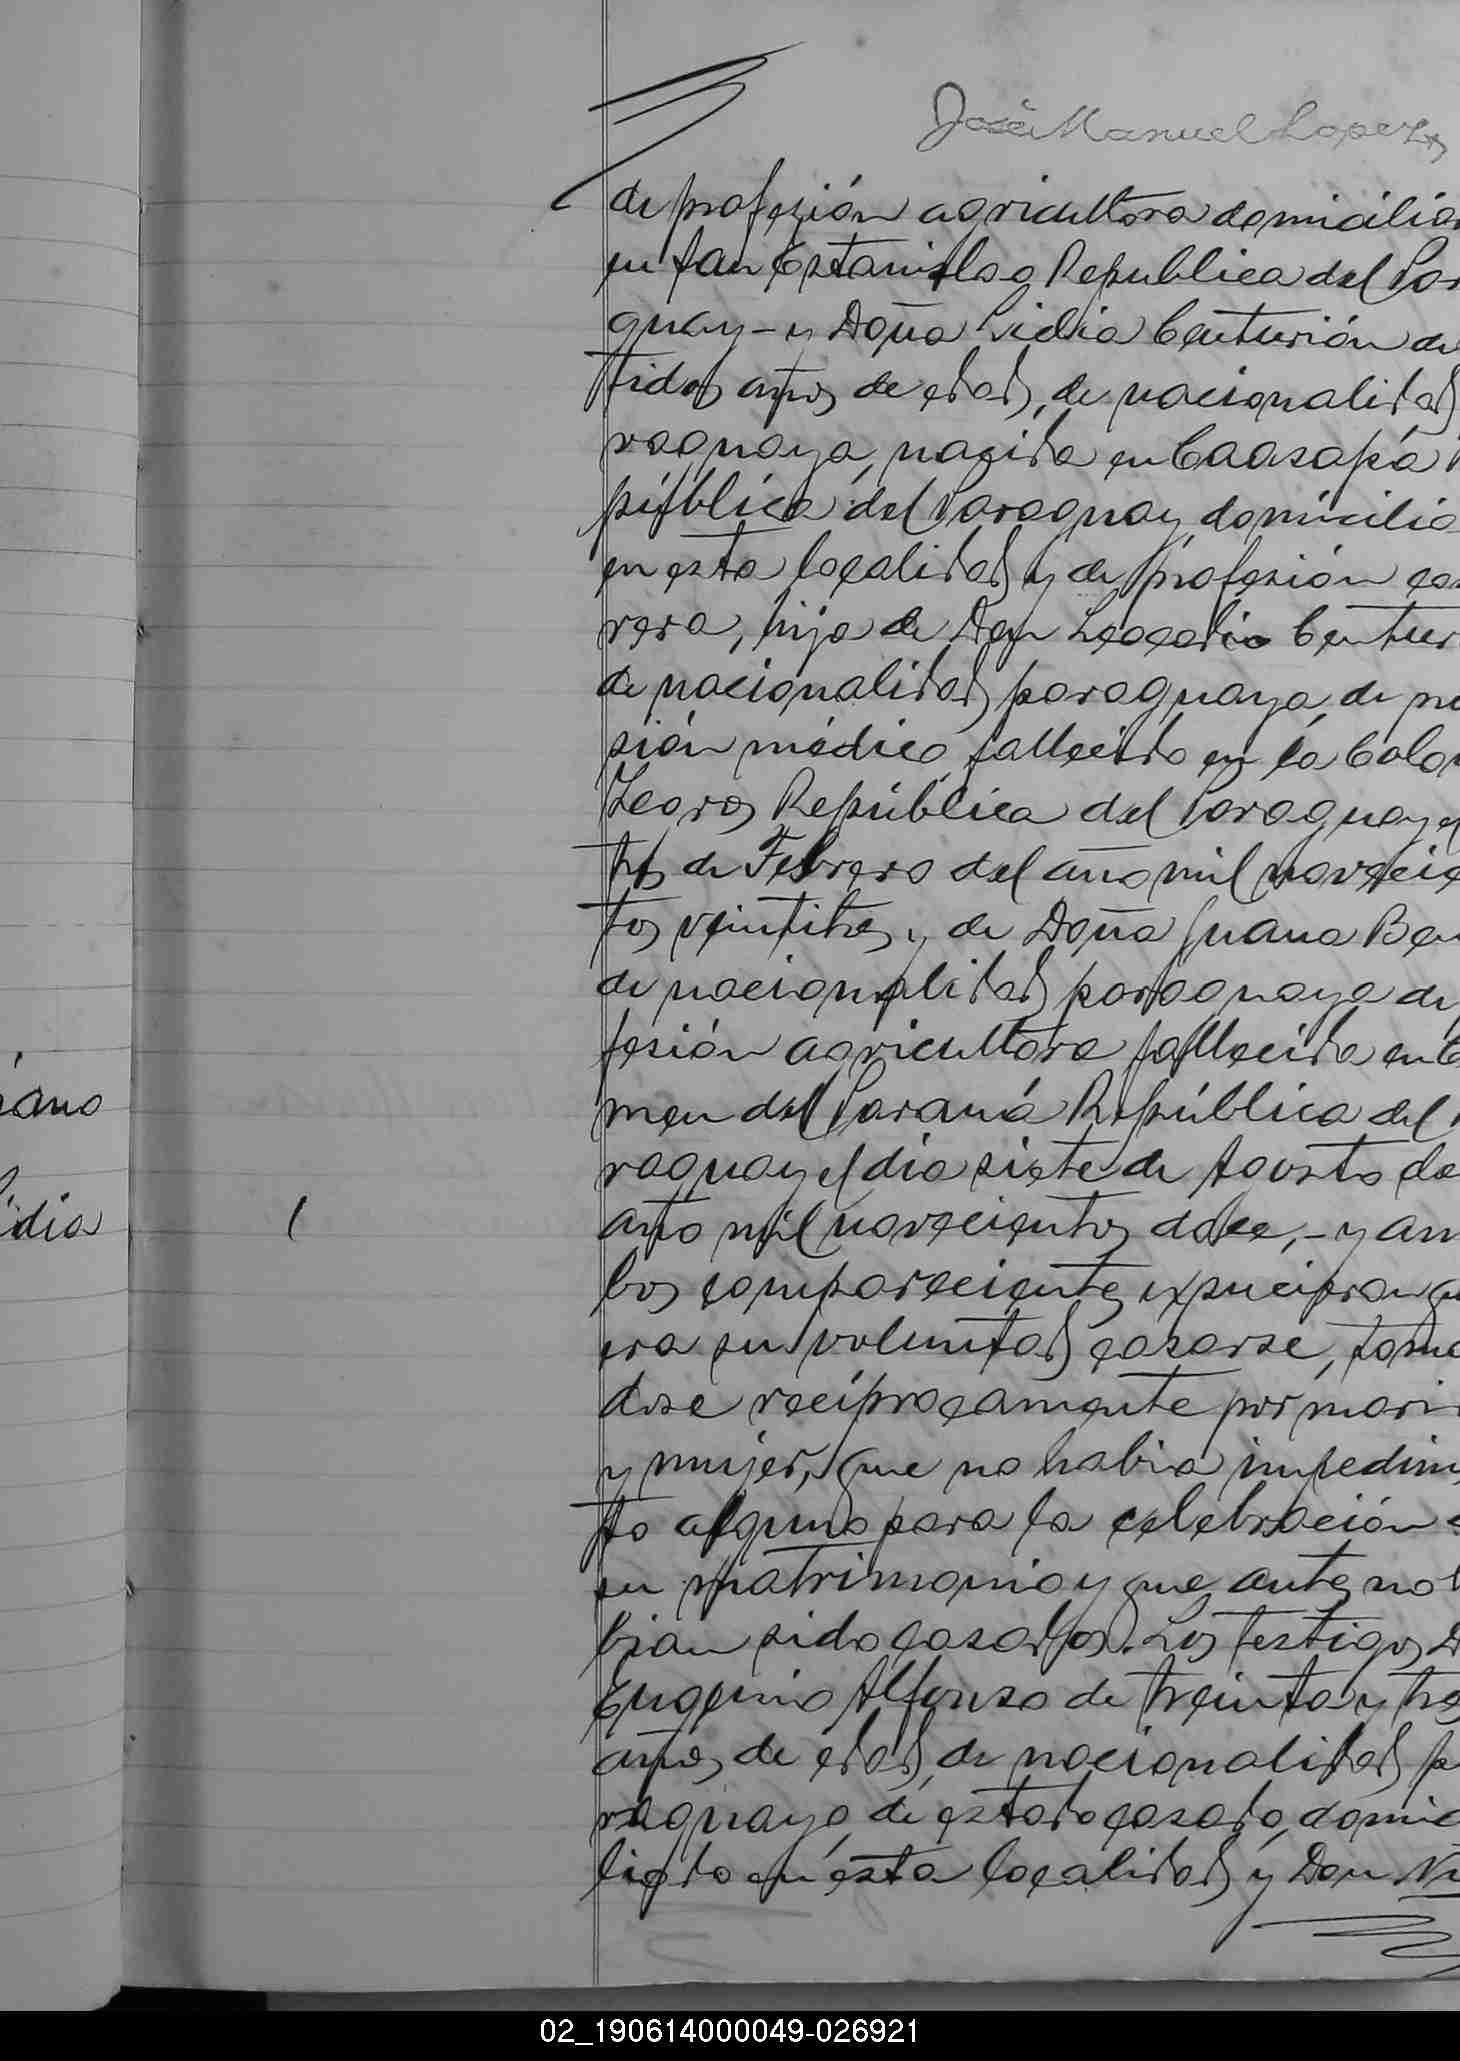 José Manuel Lopez
de profesión agricultora domicilia
en San Estanislao Republica del Par
guay - y Doña Lidia Centurión de
tidos años de edad, de nacionalidad
raguaya, nacida en Caazapá
pública del Paraguay, domicilia
en esta localidad y de profesión cos
rera, hija de Don Leocadio Centur
de nacionalidad paraguaya, de pro
sión médico, fallecido en la Colon
República del Paraguay el
tres de Febrero del año mil novecie
tos veintitres, y de Doña Juana Ben
de nacionalidad paraguaya de
fesión agricultora fallecida en C
men del Paraná República del
raguay el dia siete de Agosto de
año mil novecientos doce, - y am
bos comparecientes expucieron qu
era su voluntad casarse, toma
dose reciprocamente por mari
y mujer, que no habia impedim
to alguno para la celebración
su matrimonio y que antes no
bian sido casados. Los testigos D
Eugenio Alfonso de treinta y tres
años de edad, de nacionalidad pa
raguaya, de estado casado, domic
liado en esta localidad y Don
ano
idia
02_190614000049-026921